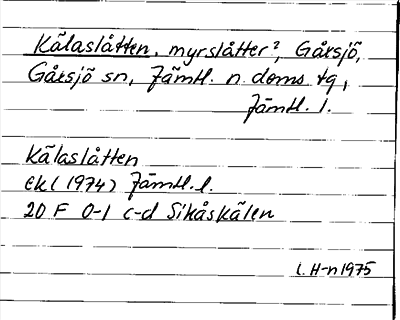 Kälaslåtten, myrslåtter?, Gåxsjö,
Gåxsjö sn, Jämtl. n. doms. tg,
Jämtl. l.
Kälaslåtten
Ek (1974) Jämtl. l.
20 F 0-1 c-d Sikåskälen
I. H-n 1975